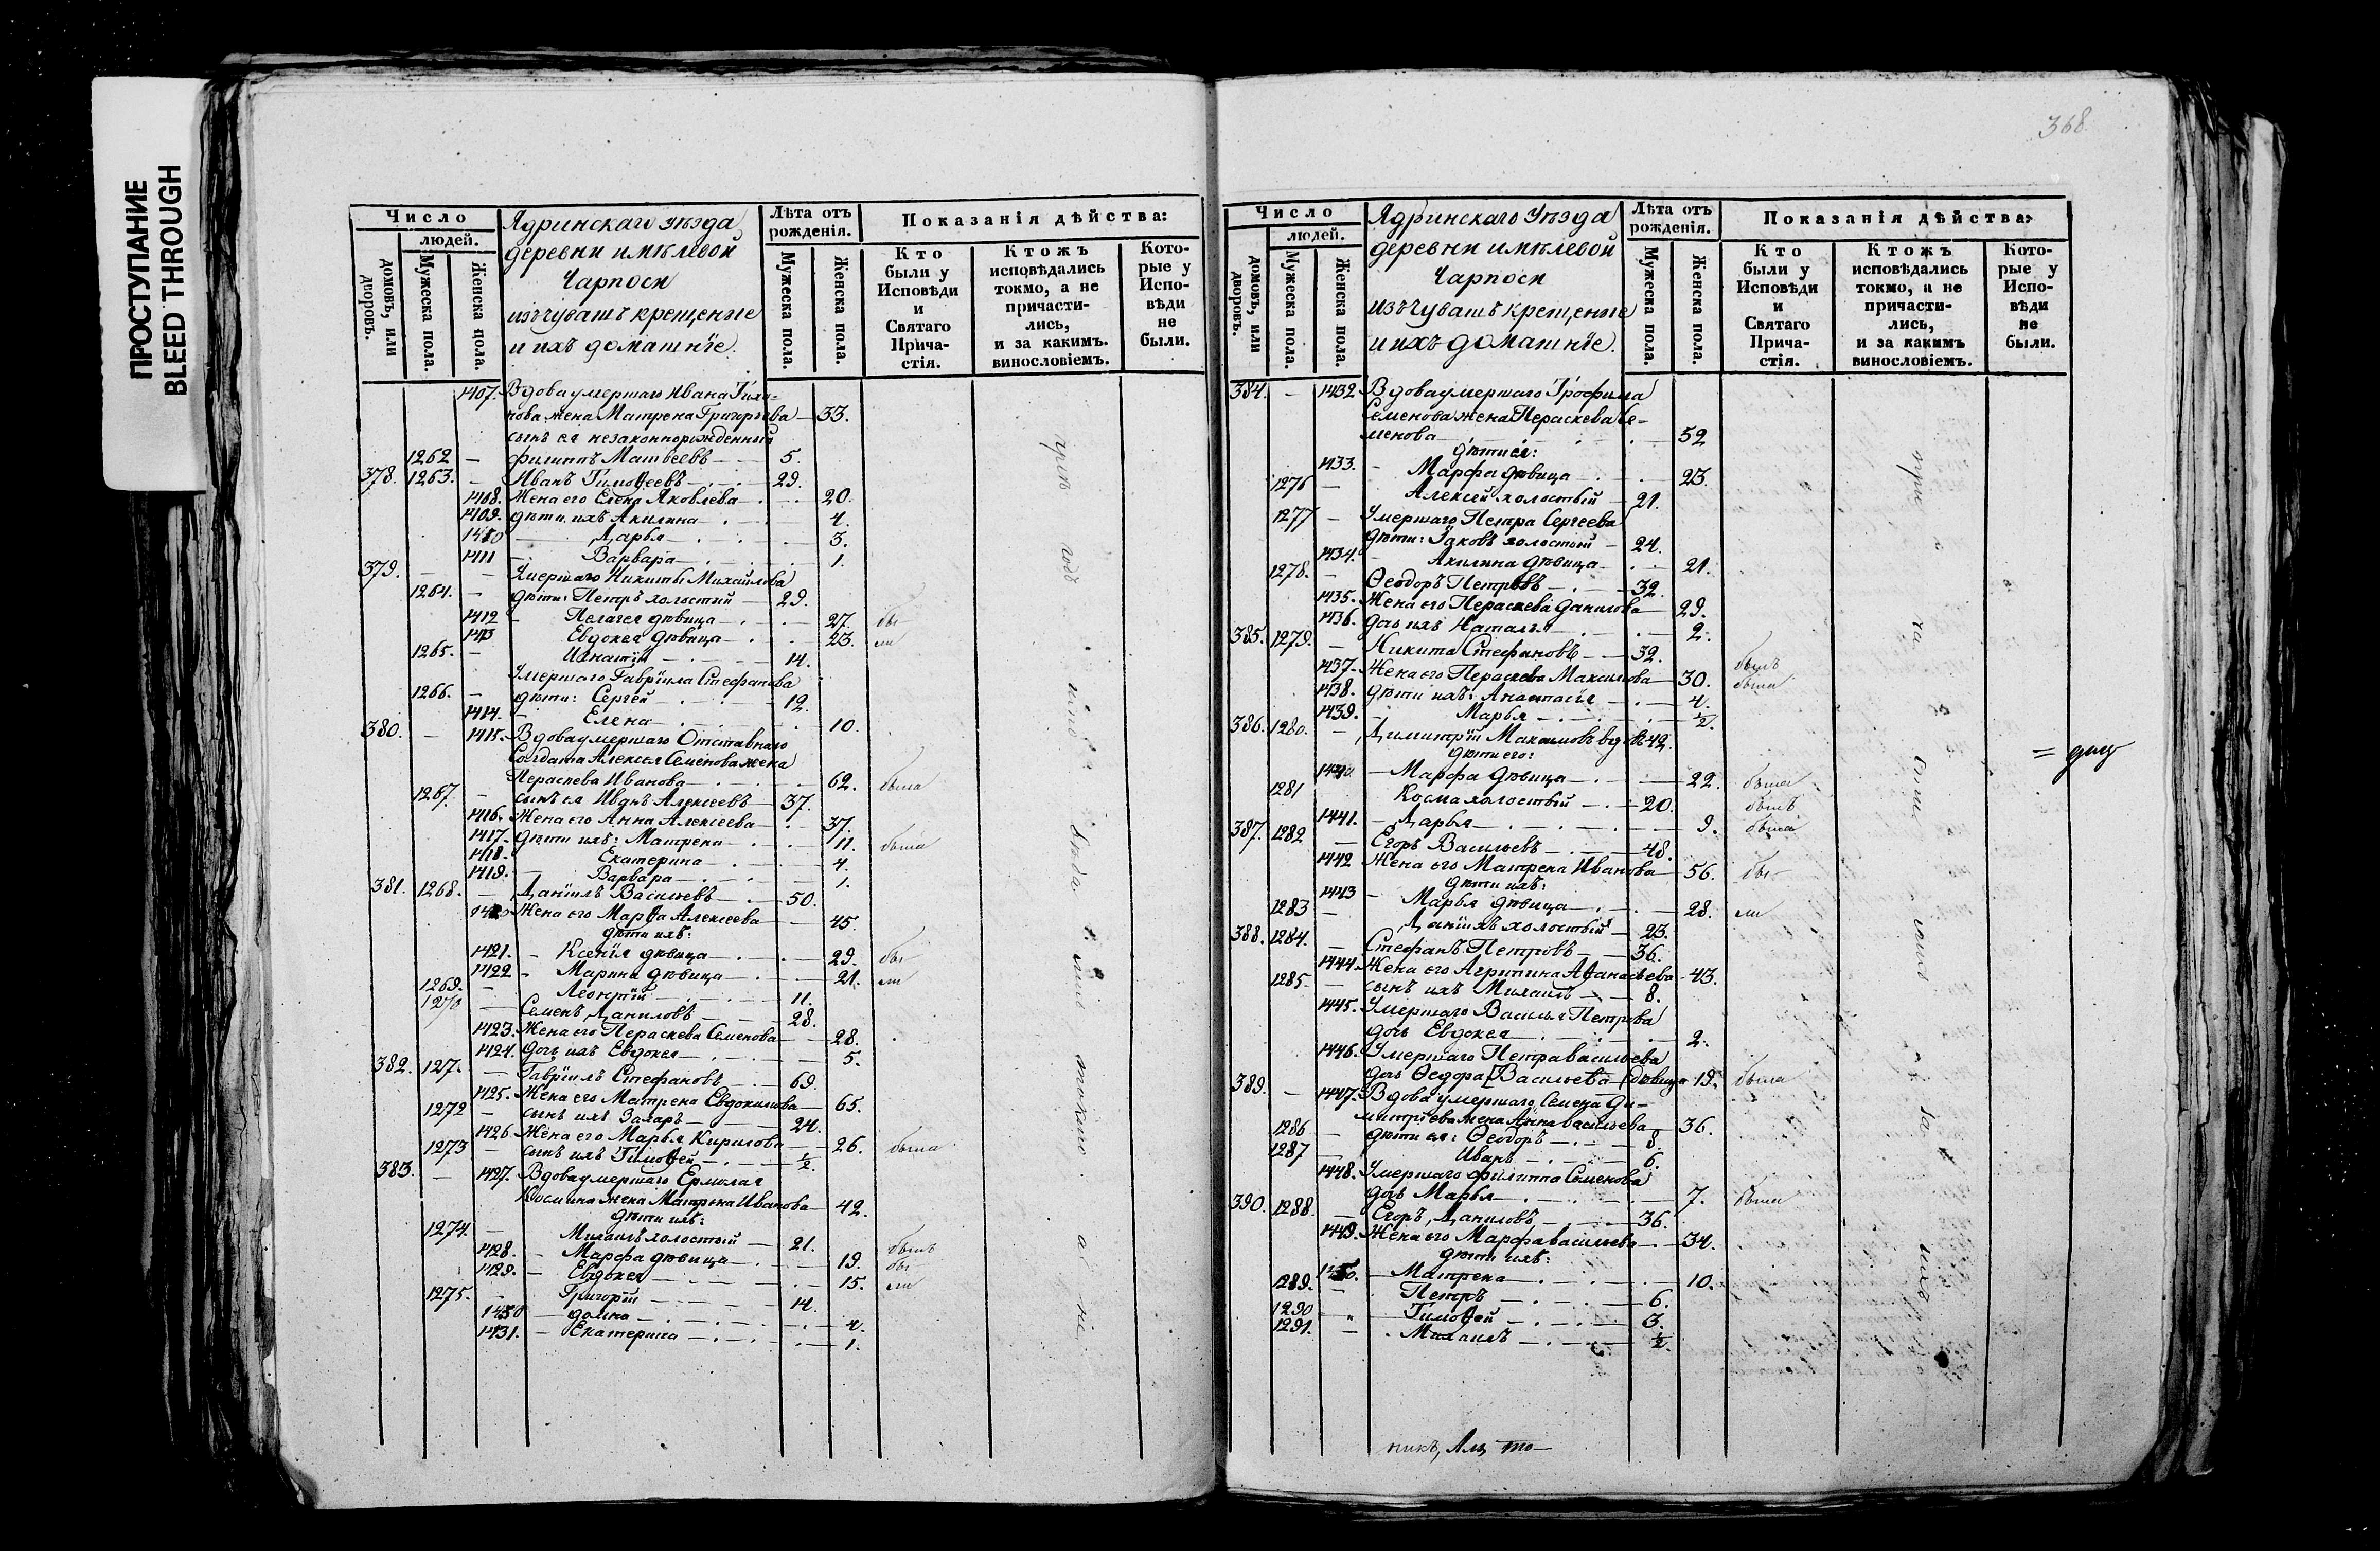 ПРОСТУПАНИЕ
BLEED THROUGH
Число
людей.
домовъ, или дворовъ.
Мужеска пола.
Женска пола.
Ядринскаго уѣзда
деревни имѣлевой
Чарпоси
изъ чувашъ крещенные
и ихъ домашніе.
Лѣта отъ рожденія.
Мужеска пола.
Женска пола.
Показанія дѣйства:
Кто были у Исповѣди и Святаго Прича-стія.
Ктожъ исповѣдались токмо, а не причасти-лись, и за какимъ. винословіемъ.
Кото-рые у Испо-вѣди не были.
1407. Вдова умершаго Ивана
нова жена Матрена Григорьева 33.
сынъ ея незаконнорожденный
1262 – Филиппъ Матвеевъ 5.
378. 1263. – Иванъ Тимоѳеевъ 29.
1408. Жена его Елена Яковлева 20.
1409. дѣти ихъ Акилина 4.
1410 Дарья 3.
1411 Варвара 1.
379. – – Умершаго Никиты Михайлова
1264. – дѣти: Петръ холостый 29.
1412 – Пелагея дѣвица 27. бы
1413 Евдокея дѣвица 23. ли
1265. – Игнатій 14.
Умершаго Гавріила Стефанова
1266. – дѣти: Сергей 12.
1414. – Елена 10.
380. – 1415. Вдова умершаго Отставнаго
Солдата Алексея Семенова жена
Пераскева Иванова 62. была
1267. – сынъ ея Иванъ Алексеевъ 37.
1416. Жена его Анна Алексеева 37.
1417. дѣти ихъ: Матрена 11. была
1418. Екатерина 4.
1419. – Варвара 1.
381. 1268. – Даніилъ Васильевъ 50.
1420 Жена его Марѳа Алексеева 45.
дѣти ихъ:
1421. – Ксенія дѣвица 29. бы
1422 – Марина дѣвица 21. ли
1269. – Леонтій 11.
1270 – Семенъ Даниловъ 28.
1423. Жена его Пераскева Семенова 28.
1424. дочь ихъ Евдокея 5.
382. 127. – Гавріилъ Стефановъ 69.
1425. Жена его Матрена Евдокимова 65.
1272 – сынъ ихъ Захаръ 24.
1426 Жена его Марья Кирилова 26. была
1273 – сынъ ихъ Тимоѳей ½.
383. – 1427. Вдова умершаго Ермолая
Космина жена Матрена Иванова 42.
дѣти ихъ:
1274. – Михаилъ холостый 21. былъ
1428. – Марфа дѣвица 19. бы
1429. – Евдокея 15. ли
1275. – Григорій 14.
1430 – домна 4.
1431. – Екатерина 1.
368
Число
людей.
домовъ, или дворовъ.
Мужеска пола.
Женска пола.
Ядринскаго Уѣзда
деревни имѣлевой
Чарпоси
изъ чувашъ крещенные
и ихъ домашніе.
Лѣта отъ рожденія.
Мужеска пола.
Женска пола.
Показанія дѣйства:
Кто были у Исповѣди и Святаго Прича-стія.
Ктожъ исповѣдались токмо, а не причасти-лись, и за какимъ винословіемъ.
Кото-рые у Испо-вѣди не были.
384. – 1432 Вдова умершаго Трофима
Семенова жена Пераскева Се-
менова 52
дѣти ея:
1433. – Марфа дѣвица 23.
1276 – Алексей холостый 21.
1277 – Умершаго Петра Сергеева
дѣти: Іаковъ холостый 24.
1434. Акилина дѣвица 21.
1278. – Ѳеодоръ Петровъ 32.
1435. Жена его Пераскева Данилова 29.
1436. дочь ихъ Наталья 2.
385. 1279. – Никита Стефановъ 32. былъ
1437. Жена его Пераскева Максимова 30. была
1438. дѣти ихъ: Анастасья 4.
1439. – Марья ½.
386. 1280. – Димитрій Максимовъ вдовъ 42.
дѣти его:
1440 – Марфа дѣвица 22. была
1281 Косма холостый 20. былъ
1441. – Дарья 9. была
387. 1282 – Егоръ Васильевъ 48.
1442 Жена его Матрена Иванова 56. бы
дѣти ихъ:
1443 – Марья дѣвица 28. ли
1283 – Даніилъ холостый 23.
388. 1284. – Стефанъ Петровъ 36.
1444. Жена его Агрипина Аѳанасьева 43.
1285. – сынъ ихъ Михаилъ 8.
1445. Умершаго Василья Петрова
дочь Евдокея 2.
1446. Умершаго Петра Васильева
дочь Ѳедора [Васильева] дѣвица 19. была
389. – 1447. Вдова умершаго Семена Ди-
митріева жена Анна Васильева 36.
1286 – дѣти ея: Ѳеодоръ 8.
1287 – Иванъ 6.
1448. Умершаго Филиппа Семенова
дочь Марья 7. была
390. 1288. – Егоръ Даниловъ 36.
1449. Жена его Марфа Васильева 34.
дѣти ихъ:
1450. – Матрена 10.
1289. – Петръ 6.
1290 – Тимоѳей 3.
1291. – Михаилъ ½.